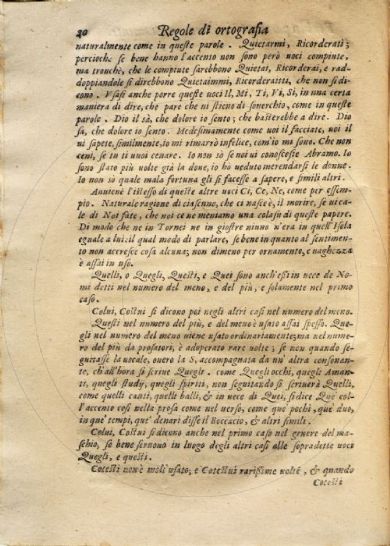 20 Regole di ortografia
naturalmente come in queste parole. Quietarmi, Ricorderati;
percioche se bene hanno l'accento non sono però uoci compiute,
ma tronche, che le compiute sarebbono Quietai, Ricorderai, e rad-
doppiandole si direbbono Quietaimmi, Ricorderaitti, che non si di-
cono. Vsasi anche porre queste uoci Il, Mi, Ti, Vi, Si, in una certa
maniera di dire, che pare che ui stieno di souerchio, come in queste
parole. Dio il sà, che dolore io sento; che basterebbe a dire. Dio
sa, che dolore io sento. Medesimamente come uoi il facciate, uoi il
ui sapete, similmente, io mi rimarrò infelice, com'io mi sono. Che non
ceni, se tu ti uuoi cenare. Io non sò se noi ui conosceste Abramo. Io
sono stato più uolte già la doue, io ho ueduto merendarsi le donne.
Io non sò quale mala fortuna gli si facesse a sapere, e simili altri.
Auuiene l'istesso di queste altre uoci Ci, Ce, Ne, come per essem-
pio. Natural ragione di ciascuno, che ci nasce è, il morire, se uicale
di Noi fate, che noi ce ne mentamo una colà sù di queste papere.
Di modo che ne in Tornei ne in giostre niuno n'era in quell'Isola
eguale a lui: il qual modo di parlare, se bene in quanto al sentimento
non accresce cosa alcuna; non dimeno per ornamento, e uaghezza
è assai in uso.
Quelli, o Quegli, Questi, e Quei sono anch'essi in uece de No-
mi detti nel numero del meno, e del più, e solamente nel primo
caso.
Colui, Costui si dicono poi negli altri casi nel numero del meno.
Questi nel numero del più, e del meno è usato assai spesso. Que-
gli nel numero del meno uiene usato ordinariamente; ma nel nume-
ro del più da prosatori, è adoperato rare uolte; se non quando se-
guitasse la uocale, ouero la S, accompagnata da un'altra consonan-
te, ch'all'hora si scriue Quegli. come Quegli occhi, quegli Aman-
ti, quegli studij, quegli spiriti, non seguitando si scriuerà Quelli,
come quelli canti, quelli balli, & in uece di Quei, si dice Que' col-
l'accento così nella prosa come nel uerso, come que' pochi, que' duo,
in que' tempi, que' denari disse il Boccaccio, & altri simili.
Colui, Costui si dicono anche nel primo caso nel genere del ma-
schio, se bene seruono in luogo degli altri casi alle sopradette uoci
Quegli, e questi.
Cotesti non è molt'usato; e Cotestui rarissime uolte, & quando
Cotesti